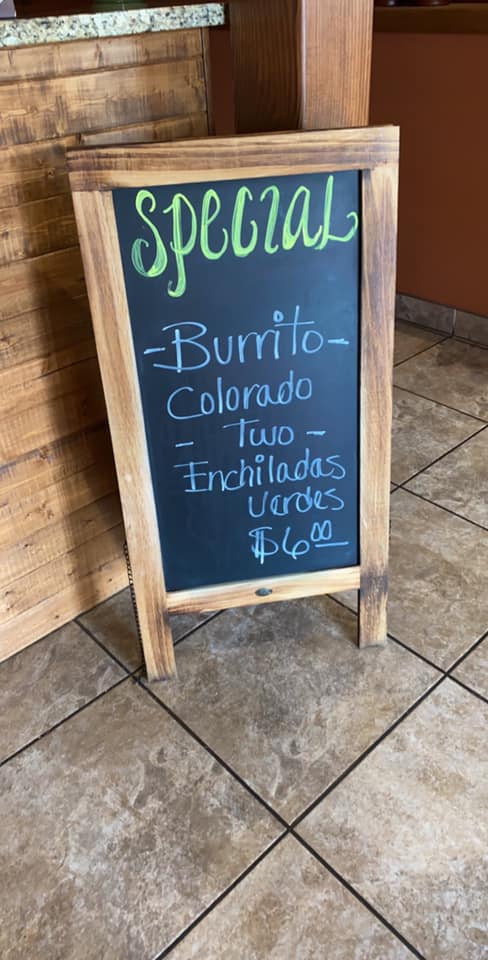 Special
-Burrito-
Colorado
- Two -
Enchiladas
Verdes
$6.00